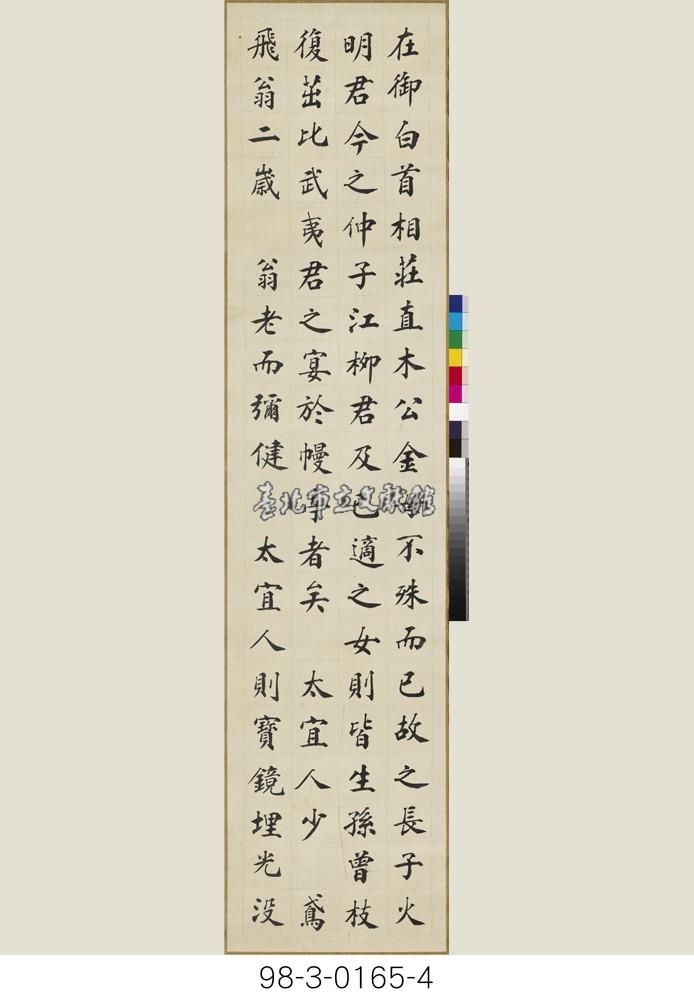 在御白首相莊直木公金不殊而已故之長子火
明君今之仲子江柳君及已適之女則皆生孫曾枝
復茁比武夷君之宴於幔亭者矣　太宜人少　鳶
飛翁二歲　翁老而彌健　太宜人則寶鏡埋光没
臺北市立文獻館
98-3-0165-4